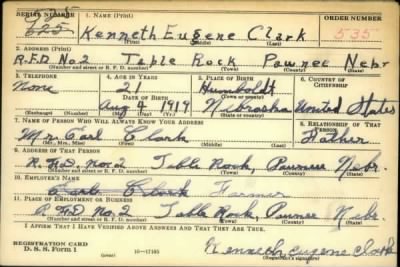 SERIAL NUMBER 1. NAME (Print) ORDER NUMBER
Kenneth Eugene Clark 535
(First) (Middle) (Last)
2. ADDRESS (Print)
R.F.D No. 2 Table Rock Pawnee Nebr
(Number and street or R. F. D. number) (Town) (County) (State)
3. TELEPHONE 4. AGE IN YEARS 5. PLACE OF BIRTH 6. COUNTRY OF CITIZENSHIP
None 21 Humboldt
DATE OF BIRTH (Town or county)
Aug 4 1919 Nebraska United States
(Exchange) (Number) (Mo.) (Day) (Yr.) (State or country)
7. NAME OF PERSON WHO WILL ALWAYS KNOW YOUR ADDRESS 8. RELATIONSHIP OF THAT PERSON
Mr Carl Clark Father
(Mr., Mrs., Miss) (First) (Middle) (Last)
9. ADDRESS OF THAT PERSON
R. F.D. No. 2 Table Rock, Pawnee Nebr.
(Number and street or R. F. D. number) (Town) (County) (State)
10. EMPLOYER'S NAME
Carl Clark Farmer
11. PLACE OF EMPLOYMENT OR BUSINESS
R F.D. No. 2 Table Rock, Pawnee Nebr.
(Number and street or R. F. D. number) (Town) (County) (State)
I AFFIRM THAT I HAVE VERIFIED ABOVE ANSWERS AND THAT THEY ARE TRUE.
REGISTRATION CARD
D. S. S. Form 1 16-17105 Kenneth Eugene Clark
(Registrant's signature)